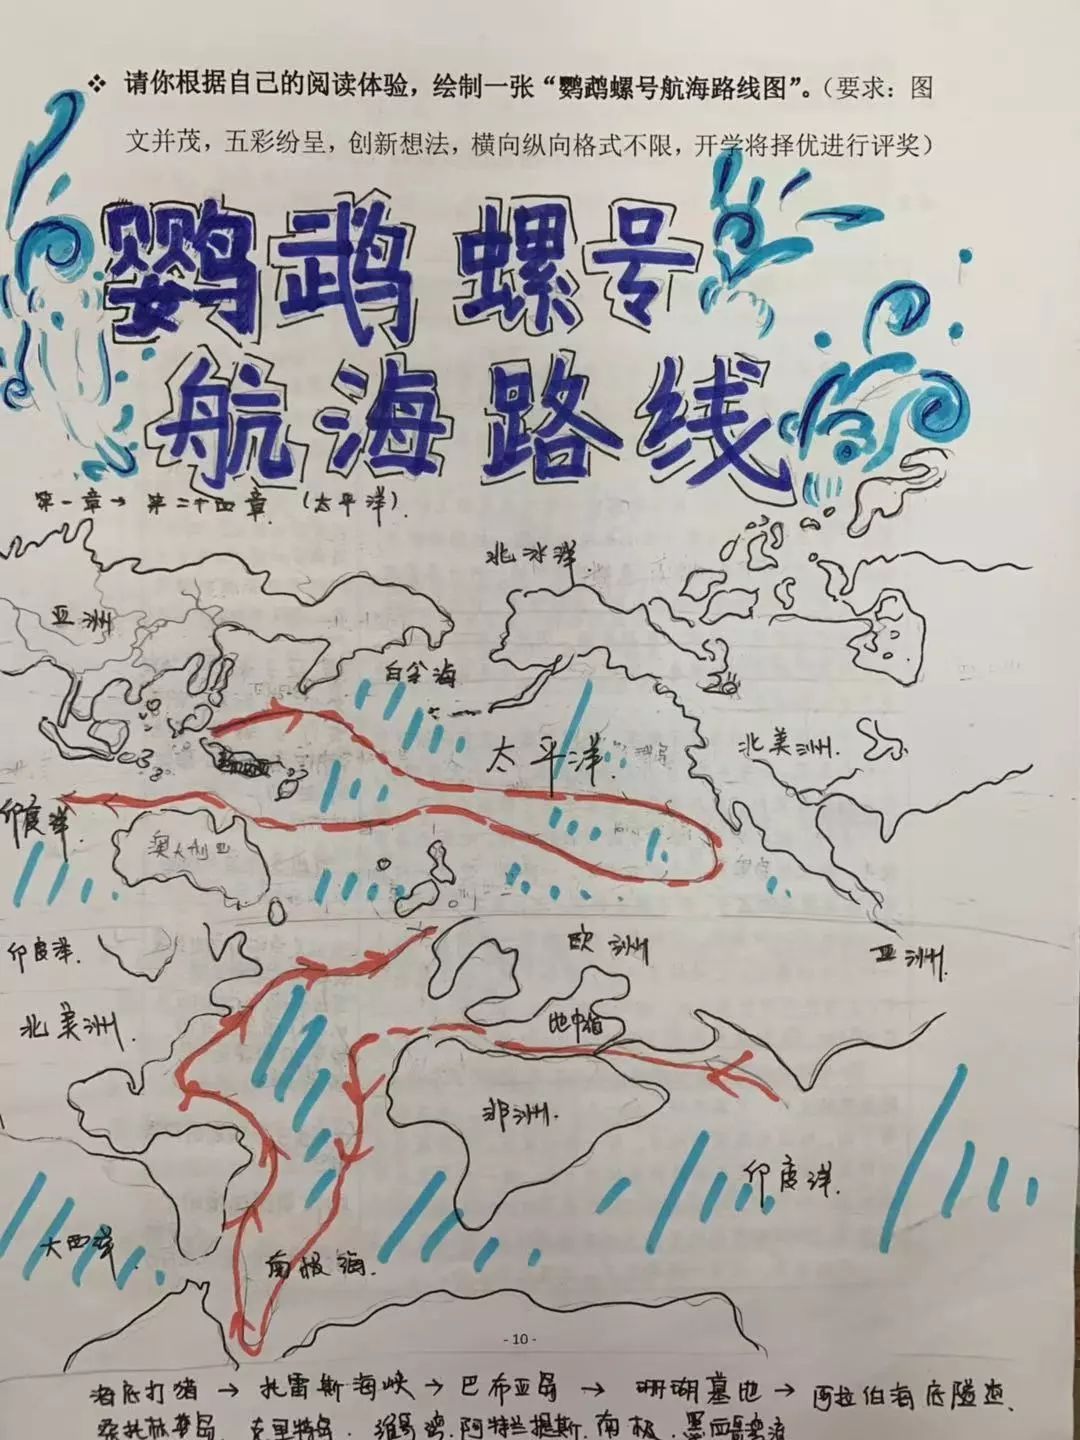 ❖ 请你根据自己的阅读体验，绘制一张“鹦鹉螺号航海路线图”。（要求：图
文并茂，五彩纷呈，创新想法，横向纵向格式不限，开学将择优进行评奖）
鹦鹉螺号
航海路线
第一章→第二十四章（太平洋）.
北冰洋.
亚洲
白令海
太平洋.
北美洲.
印度洋.
澳大利亚
印度洋.
欧洲
亚洲.
北美洲.
地中海
非洲.
印度洋.
大西洋
南极海.
- 10 -
海底打猎→托雷斯海峡→巴布亚岛→珊瑚墓地→阿拉伯海底隧道.
桑托林岛.克里特岛.维哥湾.阿特兰提斯.南极.墨西哥湾流